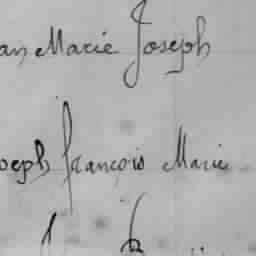 an Marie Joseph
oseph francois Marie